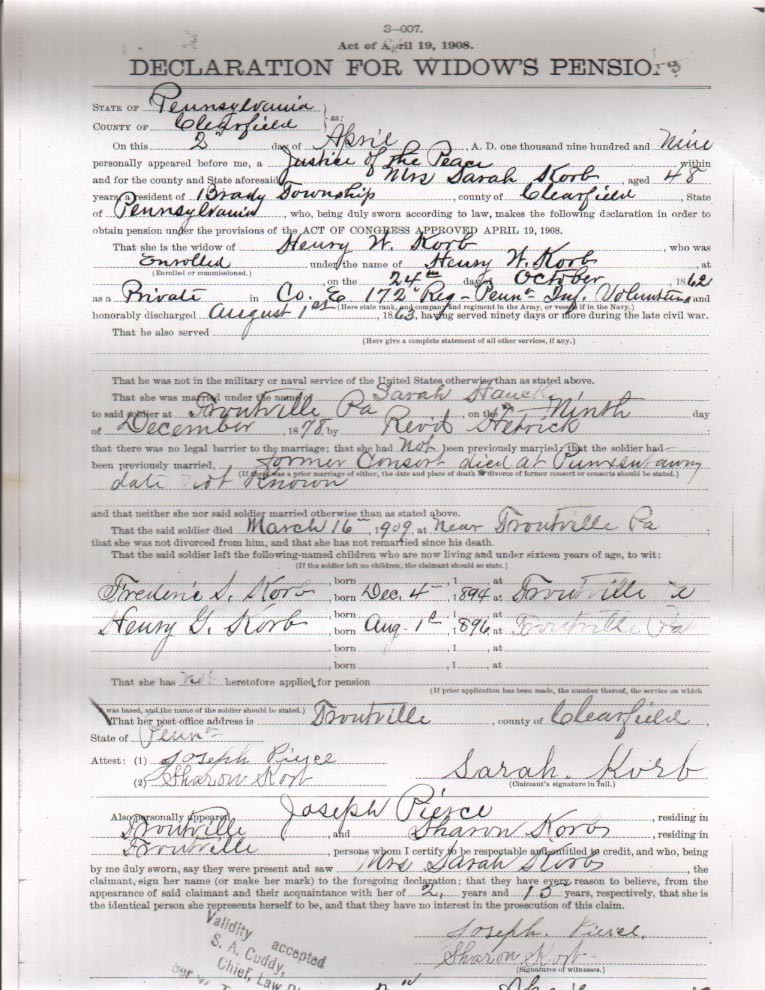 3—007.
Act of April 19, 1908.
DECLARATION FOR WIDOW'S PENSION
STATE OF Pennsylvania
COUNTY OF Clearfield ss:
On this 2nd day of April, A. D. one thousand nine hundred and Nine
personally appeared before me, a Justice of the Peace within
and for the county and State aforesaid Mrs Sarah Korb, aged 48
years, a resident of Brady Township, county of Clearfield, State
of Pennsylvania, who, being duly sworn according to law, makes the following declaration in order to
obtain pension under the provisions of the ACT OF CONGRESS APPROVED APRIL 19, 1908.
That she is the widow of Henry W. Korb, who was
Enrolled under the name of Henry W. Korb at
(Enrolled or commissioned.)
, on the 24th day of October, 1862
as a Private in Co. E 172" Reg- Penna Inf. Volunteers and
(Here state rank, and company and regiment in the Army, or vessel if in the Navy.)
honorably discharged August 1st, 1863, having served ninety days or more during the late civil war.
That he also served
(Here give a complete statement of all other services, if any.)
That he was not in the military or naval service of the United States otherwise than as stated above.
That she was married under the name of Sarah Hauck
to said soldier at Troutville Pa, on the Ninth day
of December, 1878, by Revd Hetrick
that there was no legal barrier to the marriage; that she had Not been previously married; that the soldier had
been previously married, former Consort died at Punxsutawny
(If there was a prior marriage of either, the date and place of death or divorce of former consort or consorts should be stated.)
date not Known
and that neither she nor said soldier married otherwise than as stated above.
That the said soldier died March 16th, 1909, at near Troutville Pa
that she was not divorced from him, and that she has not remarried since his death.
That the said soldier left the following-named children who are now living and under sixteen years of age, to wit:
(If the soldier left no children, the claimant should so state.)
, born , 1 , at
Frederic S. Korb, born Dec. 4th, 1894 at Troutville
, born , 1 , at
Henry G. Korb, born Aug- 1st, 1896, at Troutville Pa
, born , 1 , at
, born , 1 , at
That she has not heretofore applied for pension
(If prior application has been made, the number thereof, the service on which
it was based, and the name of the soldier should be stated.)
That her post-office address is Troutville, county of Clearfield,
State of Penna
Attest: (1) Joseph Pierce
(2) Sharon Korb
Sarah. Korb
(Claimant's signature in full.)
Also personally appeared Joseph Pierce, residing in
Troutville, and Sharon Korb, residing in
Troutville, persons whom I certify to be respectable and entitled to credit, and who, being
by me duly sworn, say they were present and saw Mrs Sarah Korb, the
claimant, sign her name (or make her mark) to the foregoing declaration; that they have every reason to believe, from the
appearance of said claimant and their acquaintance with her of 2 years and 15 years, respectively, that she is
the identical person she represents herself to be, and that they have no interest in the prosecution of this claim.
Joseph. Pierce.
Sharon Korb
(Signatures of witnesses.)
Validity accepted
S. A. Cuddy,
Chief, Law